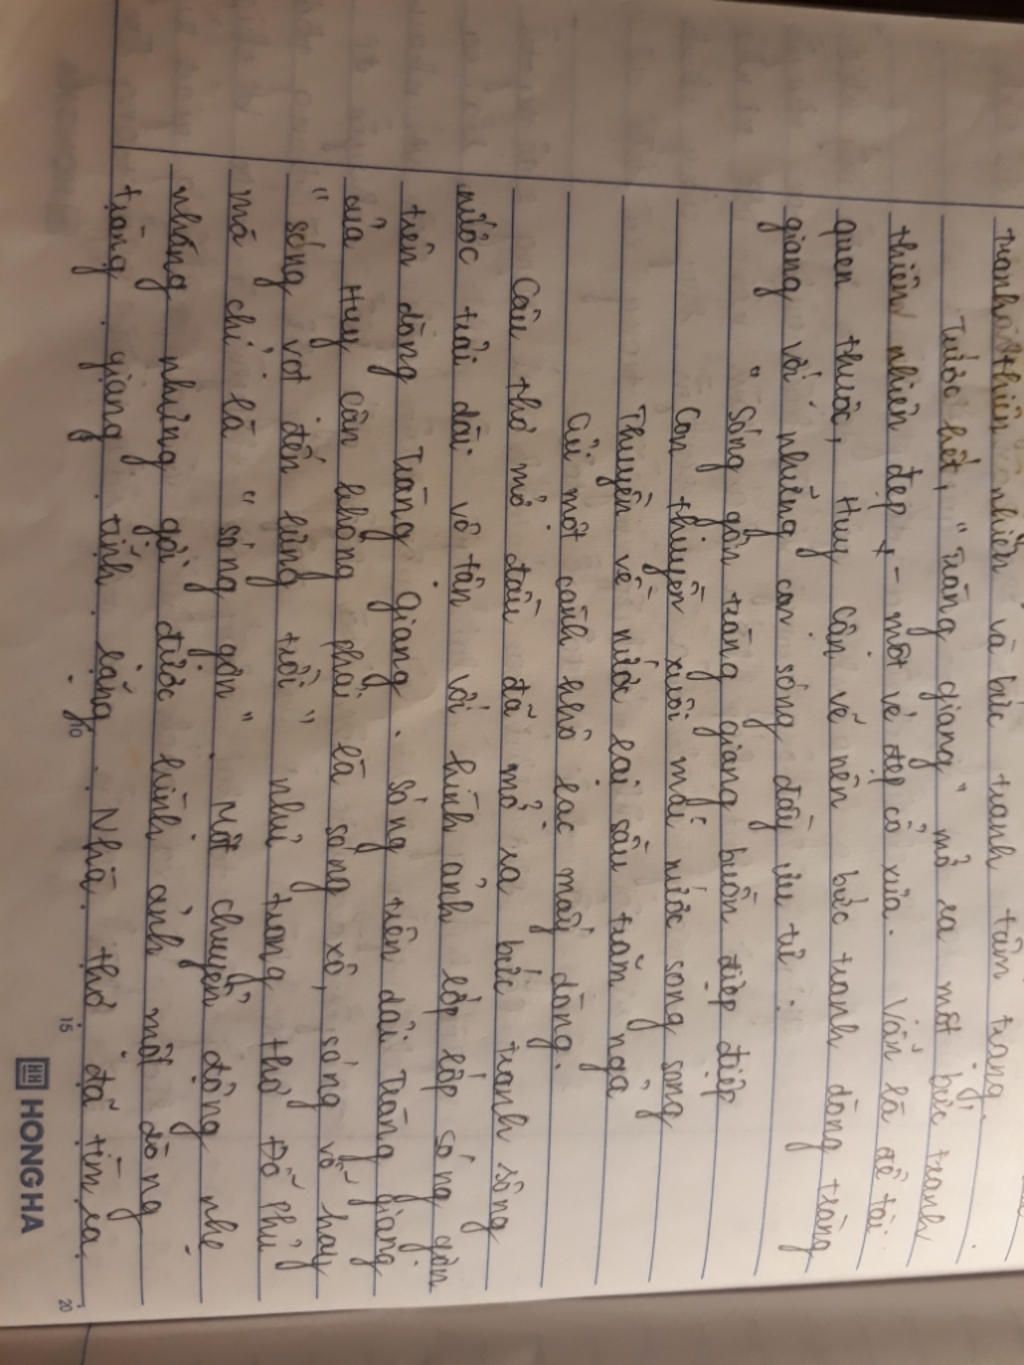 tranh thiên nhiên và bức tranh tâm trạng.
Trước hết, "Tràng giang" mở ra một bức tranh
thiên nhiên đẹp - một vẻ đẹp cổ xưa. Vẫn là đề tài
quen thuộc, Huy Cận vẽ nên bức tranh dòng tràng
giang với những con sóng đầy ưu tư:
" Sóng gợn tràng giang buồn điệp điệp
Con thuyền xuôi mái nước song song
Thuyền về nước lại sầu trăm ngả
Củi một cành khô lạc mấy dòng.
Câu thơ mở đầu đã mở ra bức tranh sông
nước trải dài vô tận với hình ảnh lớp lớp sóng gợn
trên dòng Tràng Giang. Sóng trên dải Tràng giang
của Huy Cận không phải là sóng xô, sóng vỗ hay
"sóng vọt đến lưng trời" như trong thơ Đỗ Phủ
mà chỉ là "sóng gợn". Một chuyển động nhẹ
nhàng nhưng gợi được hình ảnh một dòng
tràng giang tĩnh lặng. Nhà thơ đã tìm ra
10 15 20
HH HONG HA